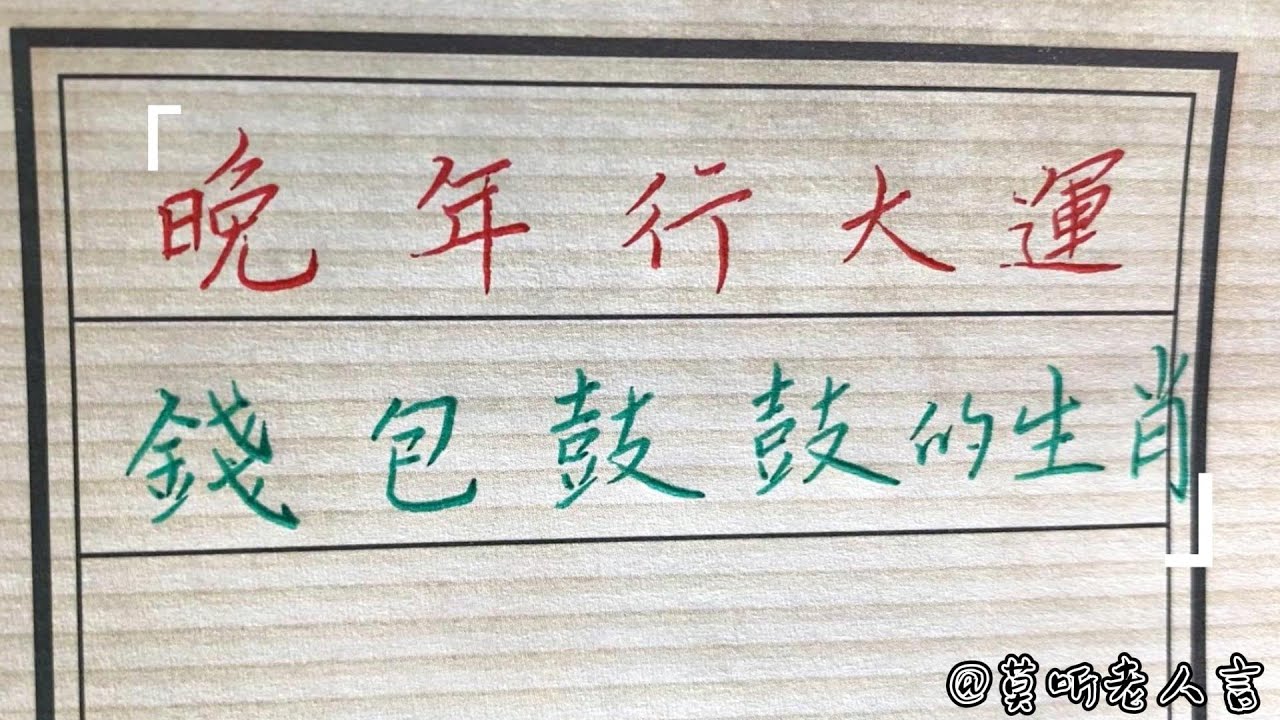 晚年行大運
錢包鼓鼓的生肖
@莫听老人言